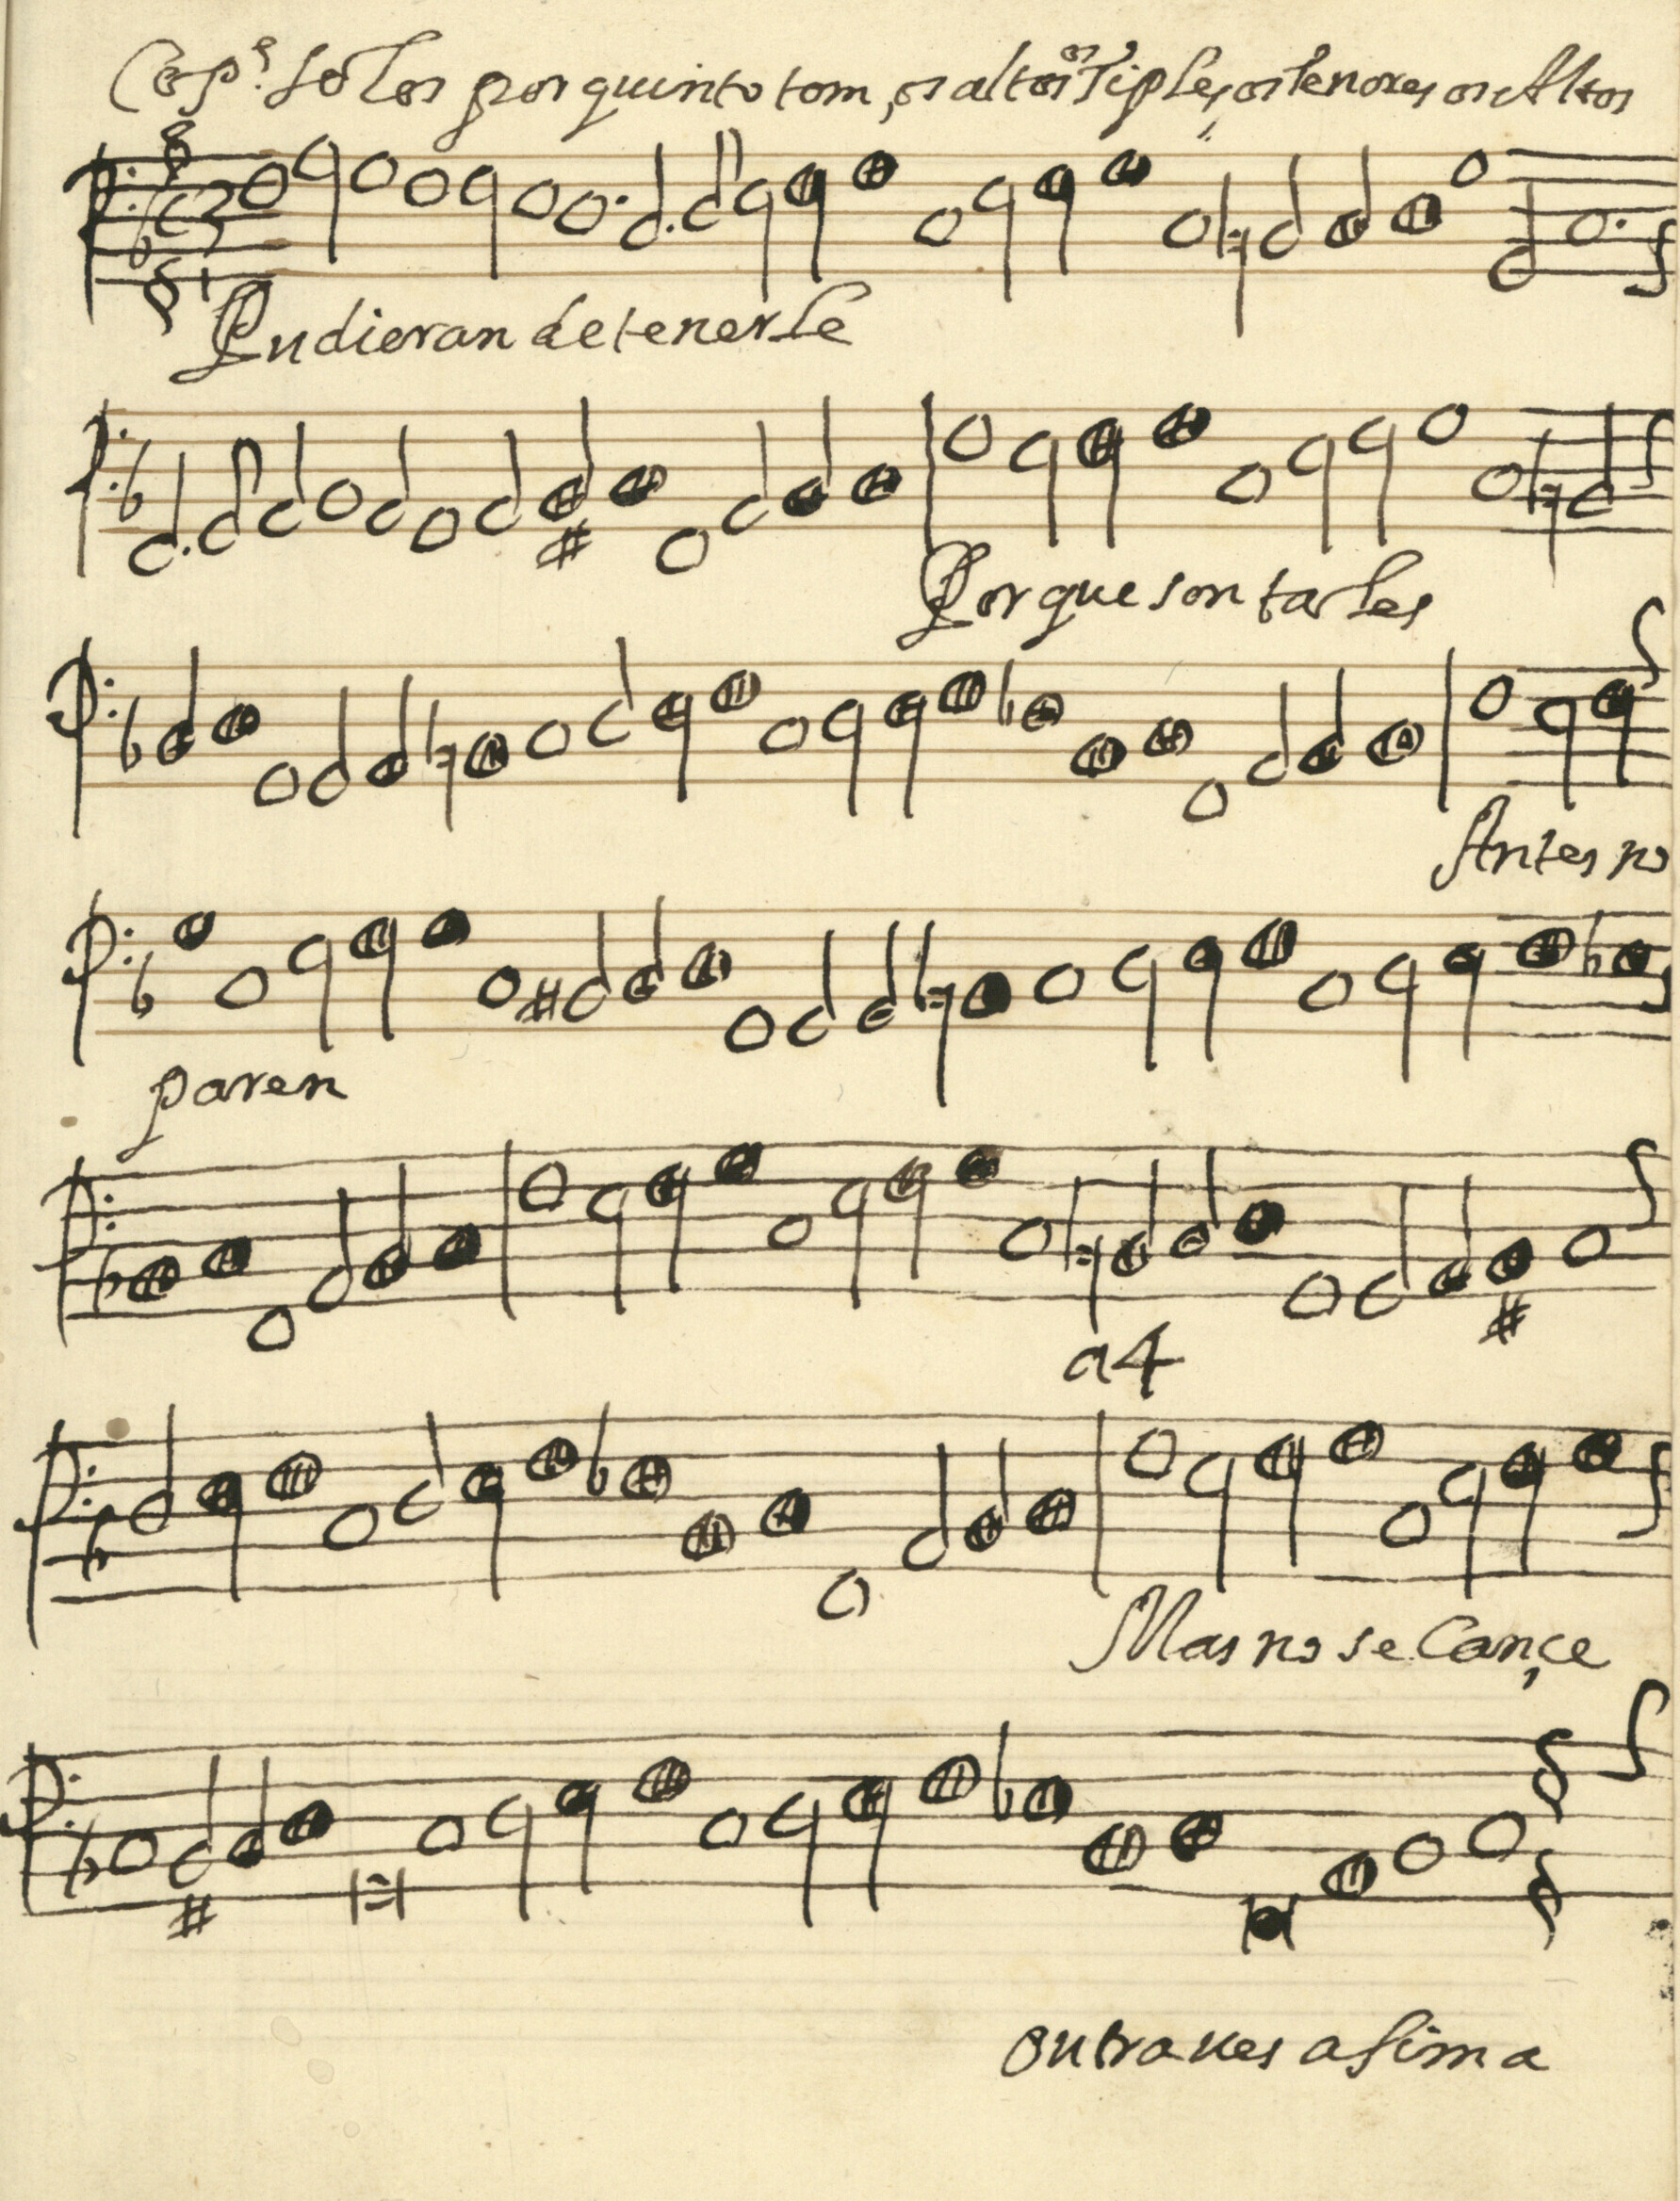 Cop.ª solos por quinto tom, os altos os Tiples, os tenores os Altos
Pudieran detenerle
Por que son tales
Antes no
paren
a4
Mas no se Cançe
outra ves asima